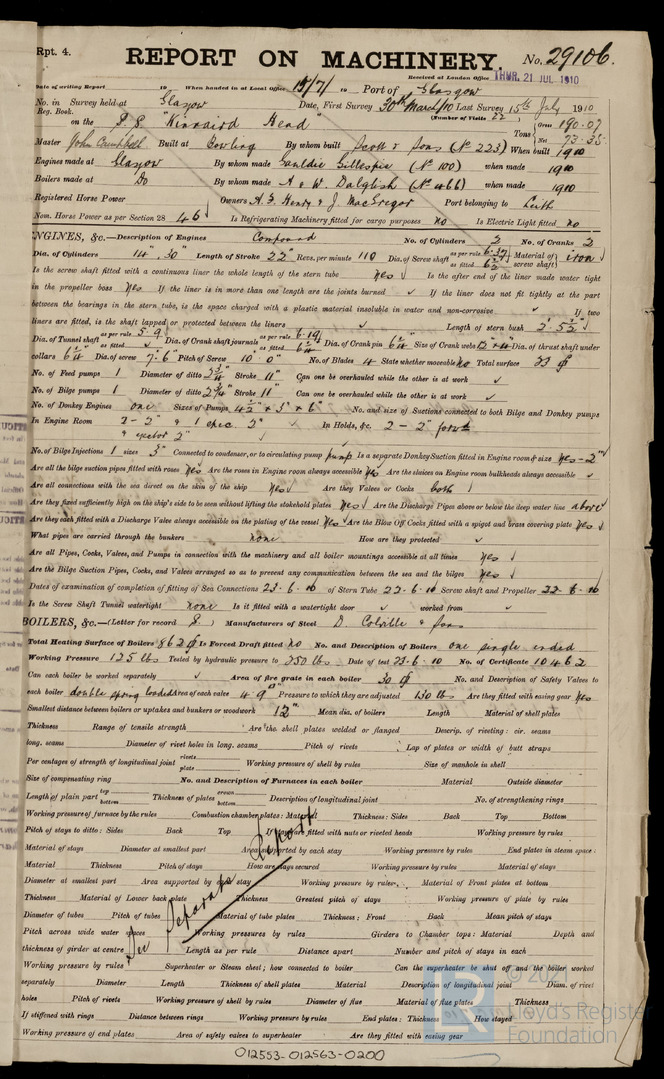 Rpt. 4.
REPORT ON MACHINERY.
No. 29106.
Received at London Office THUR. 21 JUL 1910
Date of writing Report 19 When handed in at Local Office 15/7/10 Port of Glasgow
No. in Survey held at Glasgow Date, First Survey 30th March/10 Last Survey 15th July 1910
Reg. Book. (Number of Visits 22)
on the S.S. "Kinnaird Head" Tons Gross 190.07 Net 73.35
Master John Campbell Built at Bowling By whom built Scott & Sons (No 223) When built 1910
Engines made at Glasgow By whom made Gauldie Gillespie (No 100) when made 1910
Boilers made at Do By whom made A & W. Dalglish (No 466) when made 1910
Registered Horse Power Owners A. F. Henry & J. MacGregor Port belonging to Leith
Nom. Horse Power as per Section 28 46 Is Refrigerating Machinery fitted for cargo purposes No Is Electric Light fitted No
ENGINES, &c.—Description of Engines Compound No. of Cylinders 2 No. of Cranks 2
Dia. of Cylinders 14", 30" Length of Stroke 22" Revs. per minute 110 Dia. of Screw shaft as per rule as fitted Material of screw shaft iron
Is the screw shaft fitted with a continuous liner the whole length of the stern tube Yes Is the after end of the liner made water tight
in the propeller boss Yes If the liner is in more than one length are the joints burned If the liner does not fit tightly at the part
between the bearings in the stern tube, is the space charged with a plastic material insoluble in water and non-corrosive If two
liners are fitted, is the shaft lapped or protected between the liners Length of stern bush 2' 5½"
Dia. of Tunnel shaft as per rule 5.9 as fitted Dia. of Crank shaft journals as per rule 6.19 as fitted 6¼" Dia. of Crank pin 6¼" Size of Crank webs 12 x 4¼ Dia. of thrust shaft under
collars 6¼" Dia. of screw 7'.6" Pitch of Screw 10' 0" No. of Blades 4 State whether moveable No Total surface
No. of Feed pumps 1 Diameter of ditto 2¾" Stroke 11" Can one be overhauled while the other is at work
No. of Bilge pumps 1 Diameter of ditto 2¾" Stroke 11" Can one be overhauled while the other is at work
No. of Donkey Engines one Sizes of Pumps 4½" x 3" x 6" No. and size of Suctions connected to both Bilge and Donkey pumps
In Engine Room 2-2" & 1 ejec. 2" In Holds, &c. 2 - 2" forwd
& ejector 2"
No. of Bilge Injections 1 sizes 3" Connected to condenser, or to circulating pump pump Is a separate Donkey Suction fitted in Engine room & size Yes-2"
Are all the bilge suction pipes fitted with roses Yes Are the roses in Engine room always accessible Yes Are the sluices on Engine room bulkheads always accessible
Are all connections with the sea direct on the skin of the ship Yes Are they Valves or Cocks both
Are they fixed sufficiently high on the ship's side to be seen without lifting the stokehold plates Yes Are the Discharge Pipes above or below the deep water line above
Are they each fitted with a Discharge Valve always accessible on the plating of the vessel Yes Are the Blow Off Cocks fitted with a spigot and brass covering plate Yes
What pipes are carried through the bunkers none How are they protected
Are all Pipes, Cocks, Valves, and Pumps in connection with the machinery and all boiler mountings accessible at all times Yes
Are the Bilge Suction Pipes, Cocks, and Valves arranged so as to prevent any communication between the sea and the bilges Yes
Dates of examination of completion of fitting of Sea Connections 23.6.10 of Stern Tube 22.6.10 Screw shaft and Propeller 22.6.10
Is the Screw Shaft Tunnel watertight none Is it fitted with a watertight door worked from
BOILERS, &c.—(Letter for record S.) Manufacturers of Steel D. Colville & Sons
Total Heating Surface of Boilers 862 Is Forced Draft fitted No No. and Description of Boilers one single ended
Working Pressure 125 lbs Tested by hydraulic pressure to 250 lbs Date of test 23.6.10 No. of Certificate 10462
Can each boiler be worked separately Area of fire grate in each boiler 30 No. and Description of Safety Valves to
each boiler double spring loaded Area of each valve 4.9 Pressure to which they are adjusted 130 lbs Are they fitted with easing gear Yes
Smallest distance between boilers or uptakes and bunkers or woodwork 12" Mean dia. of boilers Length Material of shell plates
Thickness Range of tensile strength Are the shell plates welded or flanged Descrip. of riveting: cir. seams
long. seams Diameter of rivet holes in long. seams Pitch of rivets Lap of plates or width of butt straps
Per centages of strength of longitudinal joint rivets plate Working pressure of shell by rules Size of manhole in shell
Size of compensating ring No. and Description of Furnaces in each boiler Material Outside diameter
Length of plain part top bottom Thickness of plates crown bottom Description of longitudinal joint No. of strengthening rings
Working pressure of furnace by the rules Combustion chamber plates: Material Thickness: Sides Back Top Bottom
Pitch of stays to ditto: Sides Back Top If stays are fitted with nuts or riveted heads Working pressure by rules
Material of stays Diameter at smallest part Area supported by each stay Working pressure by rules End plates in steam space:
Material Thickness Pitch of stays How are stays secured Working pressure by rules Material of stays
Diameter at smallest part Area supported by each stay Working pressure by rules Material of Front plates at bottom
Thickness Material of Lower back plate Thickness Greatest pitch of stays Working pressure of plate by rules
Diameter of tubes Pitch of tubes Material of tube plates Thickness: Front Back Mean pitch of stays
Pitch across wide water spaces Working pressures by rules Girders to Chamber tops: Material Depth and
thickness of girder at centre Length as per rule Distance apart Number and pitch of stays in each
Working pressure by rules Superheater or Steam chest; how connected to boiler Can the superheater be shut off and the boiler worked
separately Diameter Length Thickness of shell plates Material Description of longitudinal joint Diam. of rivet
holes Pitch of rivets Working pressure of shell by rules Diameter of flue Material of flue plates Thickness
If stiffened with rings Distance between rings Working pressure by rules End plates: Thickness How stayed
Working pressure of end plates Area of safety valves to superheater Are they fitted with easing gear
See Separate Report
012553-012563-0200
LR
Lloyd's Register
Foundation